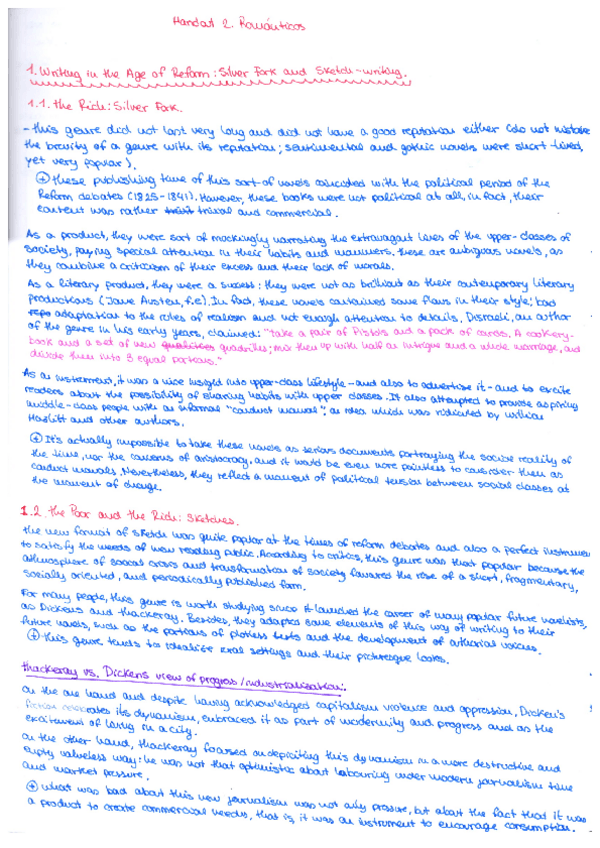 Handout 2. Románticos
1. Writing in the Age of Reform: Silver Fork and Sketch-writing.
1.1. the Rich: Silver Fork.
- this genre did not last very long and did not have a good reputation either (do not mistake
the brevity of a genre with its reputation; sentimental and gothic novels were short-lived,
yet very popular).
⊕ these publishing time of this sort of novels coincided with the political period of the
Reform debates (1825-1841). However, these books were not political at all, in fact, their
content was rather trivial and commercial.
As a product, they were sort of mockingly narrating the extravagant lives of the upper-classes of
society, paying special attention in their habits and manners. these are ambiguous novels, as
they combine a criticism of their excess and their lack of morals.
As a literary product, they were a success: they were not as brilliant as their contemporary literary
productions (Jane Austen, f.e). In fact, these novels contained some flaws in their style; bad
adaptation to the roles of realism and not enough attention to details. Disraeli, an author
of the genre in his early years, claimed: "take a pair of Pistols and a pack of cards, A cookery-
book and a set of new quadrilles; mix them up with half an intrigue and a whole marriage, and
divide them into 3 equal portions."
As an instrument, it was a nice insight into upper-class lifestyle - and also to advertise it - and to excite
readers about the possibility of sharing habits with upper classes. It also attempted to provide aspiring
middle-class people with an informal "conduct manual"; an idea which was ridiculed by William
Hazlitt and other authors.
⊕ It's actually impossible to take these novels as serious documents portraying the social reality of
the time, nor the concerns of aristocracy, and it would be even more pointless to consider them as
conduct manuals. Nevertheless, they reflect a moment of political tension between social classes at
the moment of change.
1.2. the Poor and the Rich: Sketches.
the new format of sketch was quite popular at the times of reform debates and also a perfect instrument
to satisfy the needs of new reading public. According to critics, this genre was that popular because the
atmosphere of social crisis and transformation of society favoured the rise of a short, fragmentary,
socially oriented, and periodically published form.
For many people, this genre is worth studying since it launched the career of many popular future novelists,
as Dickens and thackeray. Besides, they adapted some elements of this way of writing to their
future novels, such as the portions of plotless texts and the development of authorial voices.
⊕ this genre tends to idealise rural settings and their picturesque looks.
thackeray vs. Dickens view of progress / industrialisation:
on the one hand and despite having acknowledged capitalism violence and oppression, Dicken's
fiction celebrates its dynamism, embraced it as part of modernity and progress and as the
excitement of living in a city.
on the other hand, thackeray focused on depicting this dynamism in a more destructive and
empty valueless way: he was not that optimistic about labouring under modern journalism time
and market pressure.
⊕ what was bad about this new journalism was not only pressure, but about the fact that it was
a product to create commercial needs, that is, it was an instrument to encourage consumption.